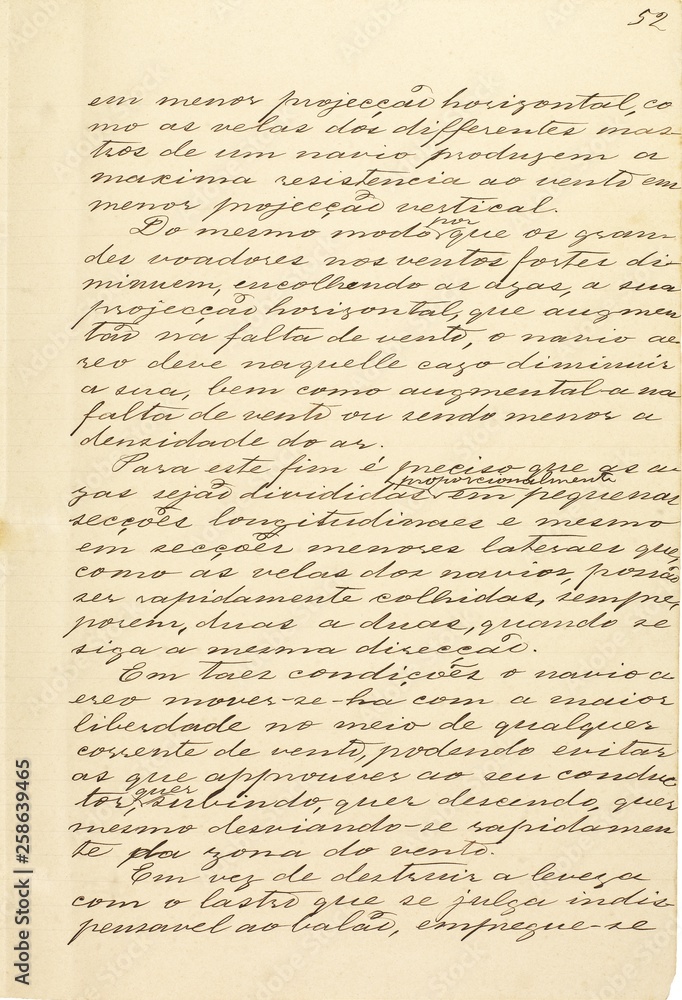 52
em menor projecção horizontal, co
mo as velas dos differentes mas-
tros de um navio produzem a
maxima resistencia ao vento em
menor projecção vertical.
Do mesmo modo por que os gran-
des voadores nos ventos fortes di-
minuem, encolhendo as azas, a sua
projecção horizontal, que augmen
tão na falta de vento, o navio ae-
reo deve naquelle cazo diminuir
a sua, bem como augmental-a na
falta de vento ou sendo menor a
densidade do ar.
Para este fim é preciso que as a-
zas sejão divididas proporcionalmente em pequenas
secções longitudinaes e mesmo
em secções menores lateraes que,
como as velas dos navios, possão
ser rapidamente colhidas, sempre,
porem, duas a duas, quando se
siga a mesma direcção.
Em taes condições o navio a-
ereo mover-se-ha com a maior
liberdade no meio de qualquer
corrente de vento, podendo evitar
as que approuver ao seu conduc
tor, quer subindo, quer descendo, quer
mesmo desviando-se rapidamen
te da zona do vento.
Em vez de destruir a leveza
com o lastro que se julga indis
pensavel ao balão, empregue-se
Adobe Stock | #258639465
Adobe Stock